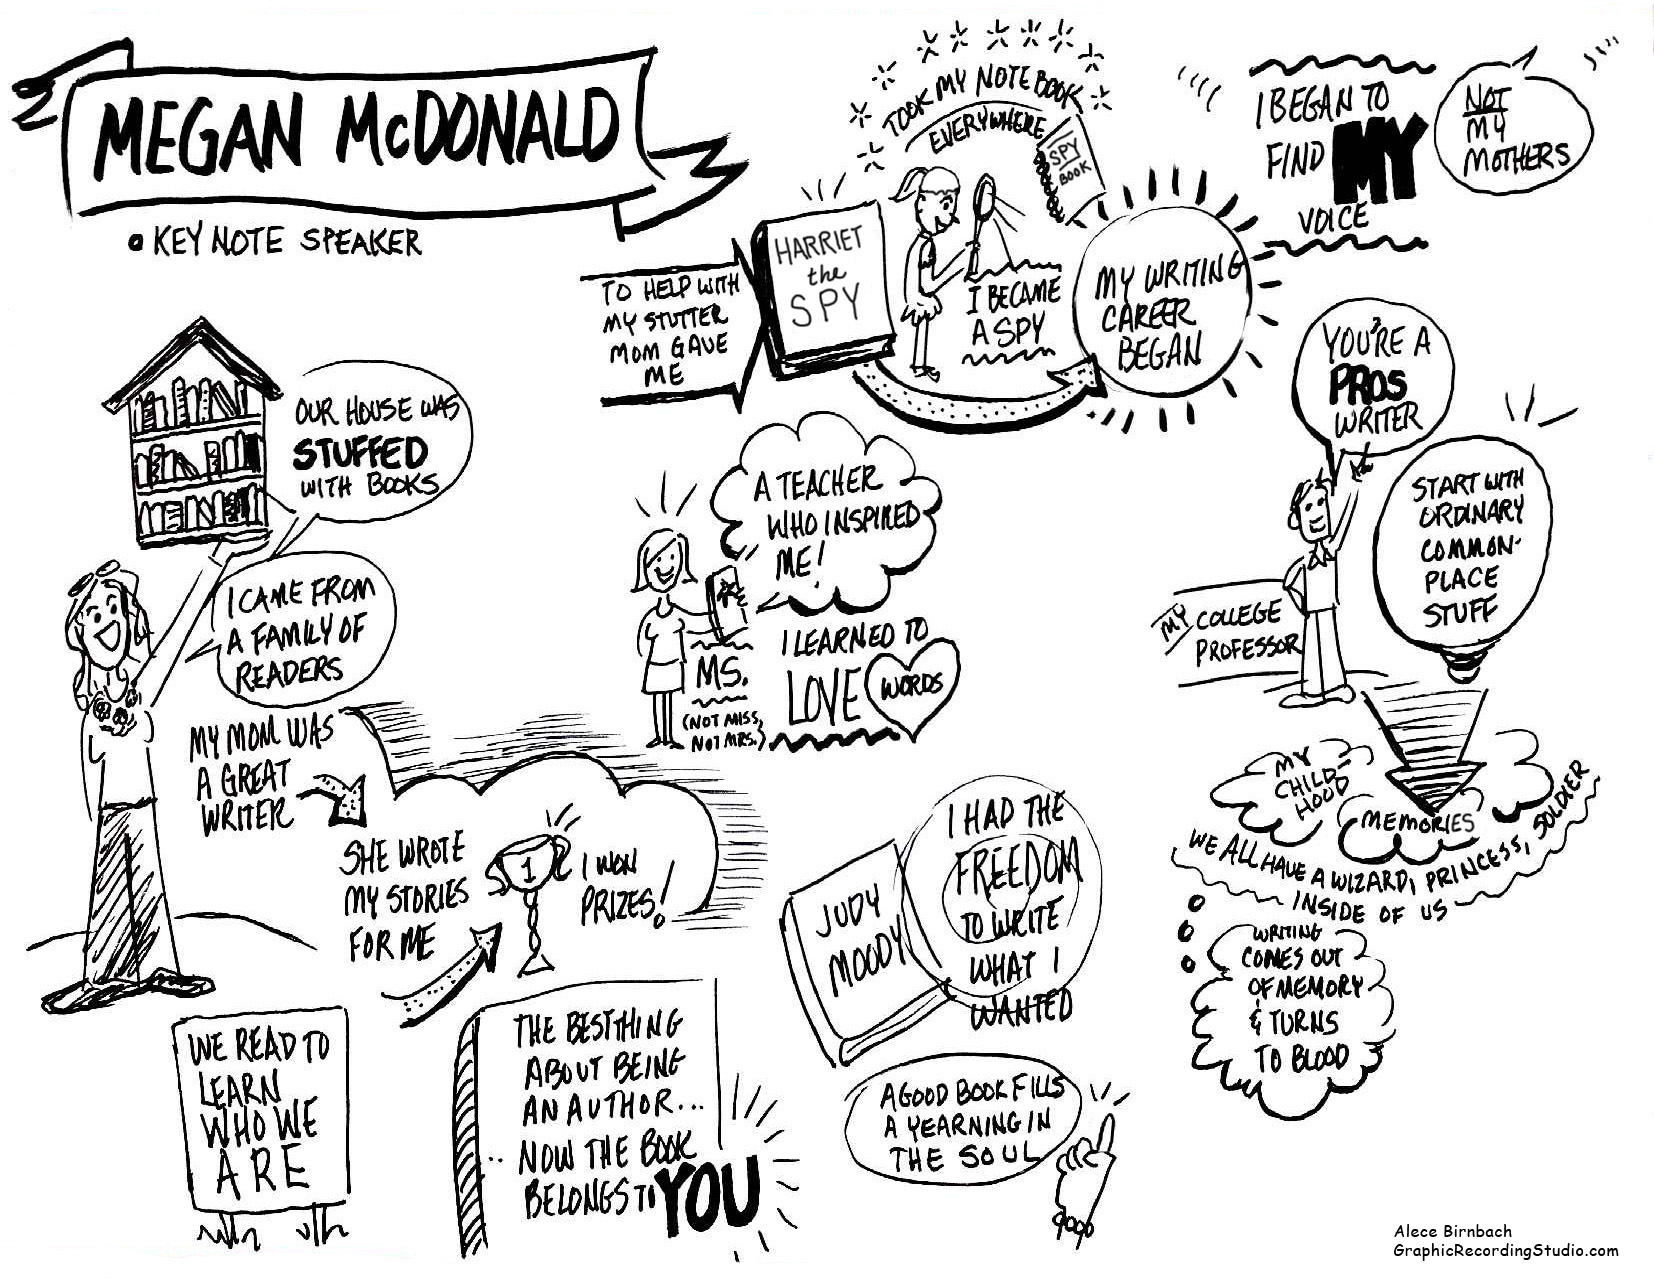 MEGAN McDONALD
KEY NOTE SPEAKER
OUR HOUSE WAS
STUFFED
WITH BOOKS
I CAME FROM
A FAMILY OF
READERS
MY MOM WAS
A GREAT
WRITER
SHE WROTE
MY STORIES
FOR ME
1
I WON
PRIZES!
WE READ TO
LEARN
WHO WE
ARE
THE BEST THING
ABOUT BEING
AN AUTHOR...
.. NOW THE BOOK
BELONGS TO YOU
TO HELP WITH
MY STUTTER
MOM GAVE
ME
HARRIET
the
SPY
TOOK MY NOTE BOOK
EVERYWHERE
SPY
BOOK
I BECAME
A SPY
MY WRITING
CAREER
BEGAN
A TEACHER
WHO INSPIRED
ME!
MS.
(NOT MISS,
NOT MRS.)
I LEARNED TO
LOVE WORDS
JUDY
MOODY
I HAD THE
FREEDOM
TO WRITE
WHAT I
WANTED
A GOOD BOOK FILLS
A YEARNING IN
THE SOUL
I BEGAN TO
FIND MY
VOICE
NOT
MY
MOTHERS
YOU'RE A
PROS
WRITER
MY COLLEGE
PROFESSOR
START WITH
ORDINARY
COMMON-
PLACE
STUFF
MY
CHILD
HOOD
MEMORIES
WE ALL HAVE A WIZARD, PRINCESS, SOLDIER
INSIDE OF US
WRITING
COMES OUT
OF MEMORY
& TURNS
TO BLOOD
Alece Birnbach
GraphicRecordingStudio.com